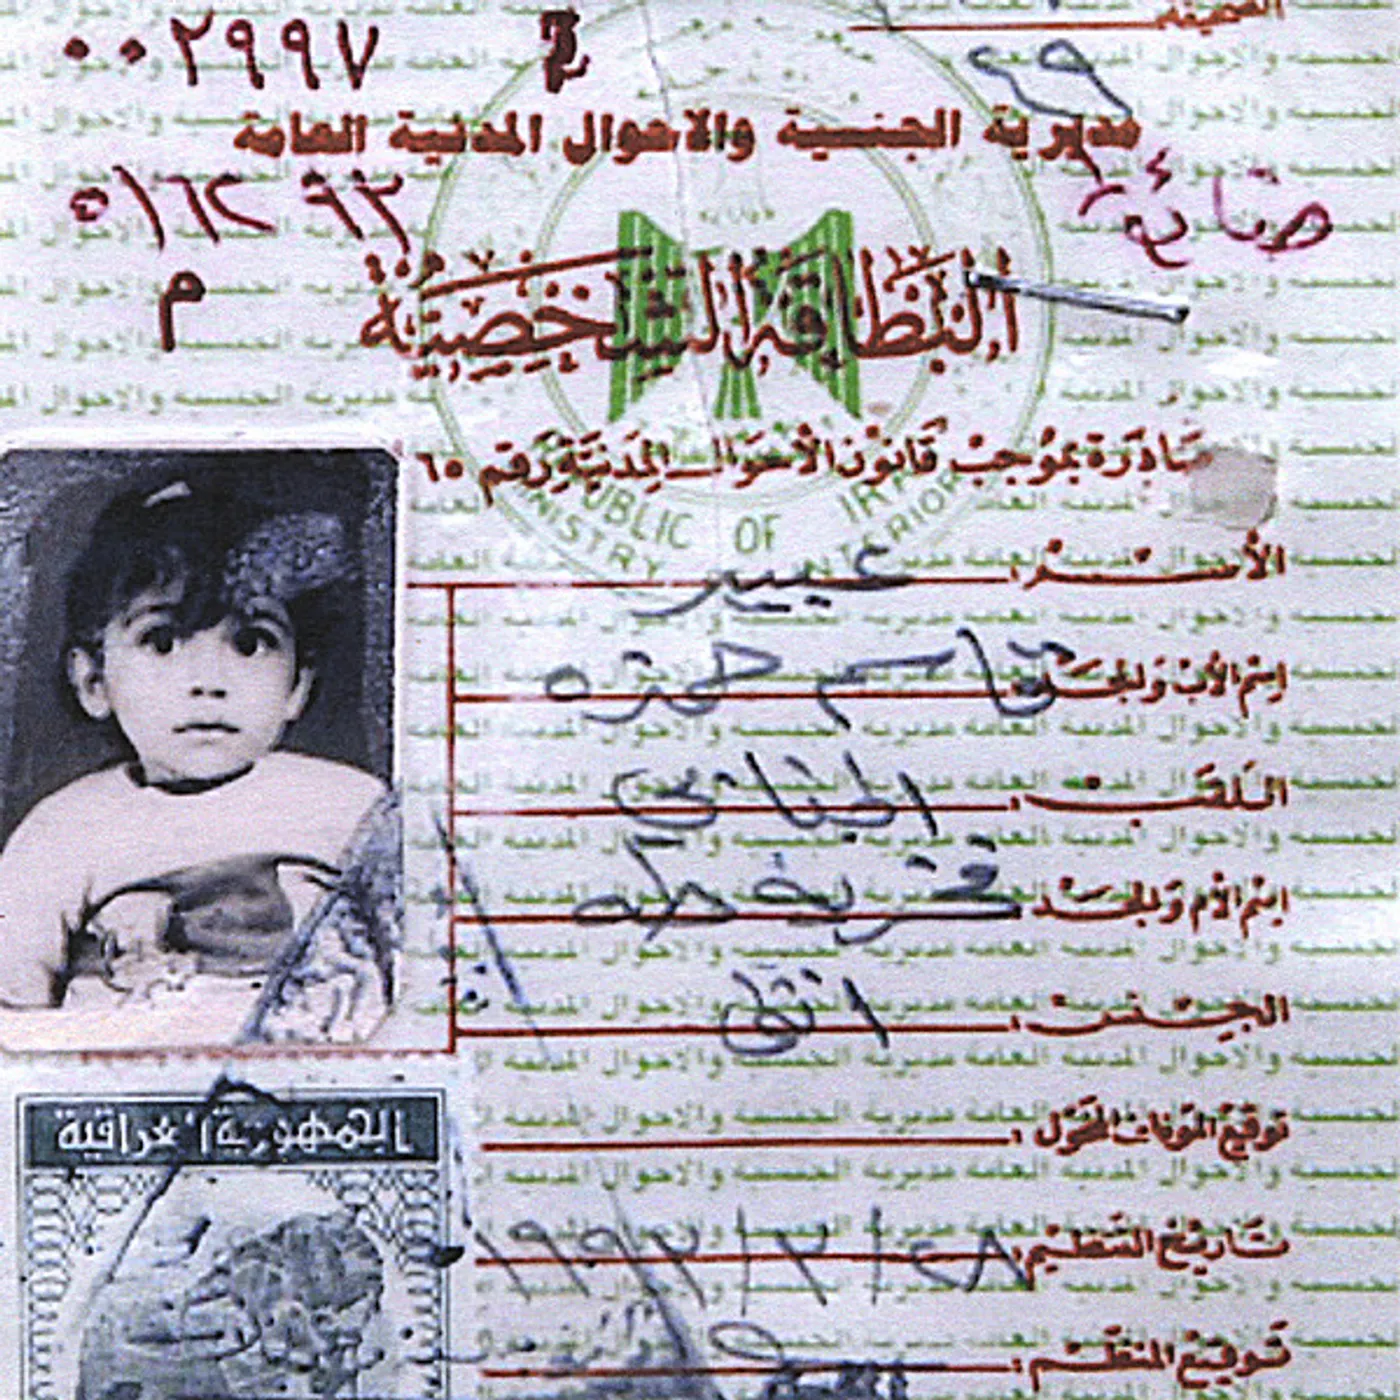 الصحيفة
٠٠٢٩٩٧
٤٩
مديرية الجنسية والاحوال المدنية العامة
م
البطاقة الشخصية
صادرة بموجب قانون الأحوال المدنية رقم ٦٥
REPUBLIC OF IRAQ
MINISTRY INTERIOR
الأسم : عبير
إسم الأب والجد : قاسم حمزه
اللقب : الجنابي
إسم الأم والجد : فخريه طه
الجنس : انثى
توقيع الموظف المخول :
تاريخ التنظيم : ٢٨ / ٢ / ١٩٩٣
توقيع المنظم :
الجمهورية العراقية